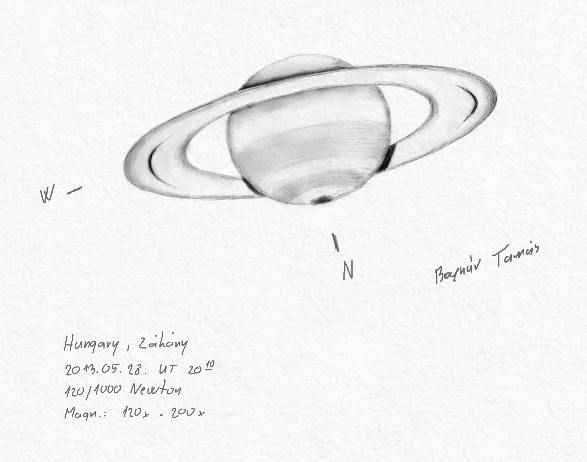 W
N
Bognár Tamás
Hungary, Záhony
2013.05.28. UT 20¹⁰
120/1000 Newton
Magn.: 120x - 200x